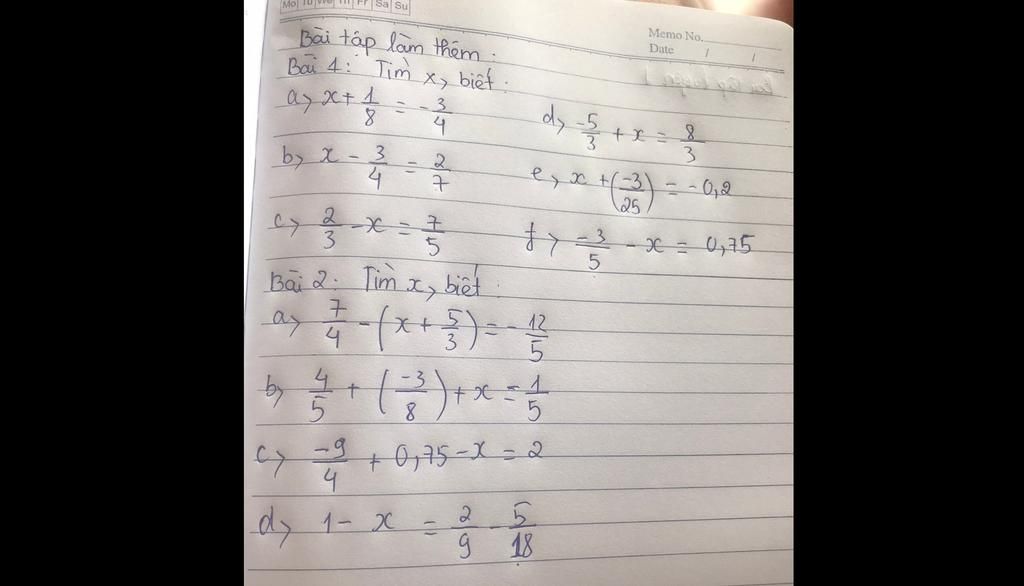 Mo Tu We Th Fr Sa Su
Memo No.
Date / /
Bài tập làm thêm:
Bài 1: Tìm x, biết:
a, x + 1/8 = -3/4
d, -5/3 + x = 8/3
b, x - 3/4 = 2/7
e, x + (-3/25) = -0,2
c, 2/3 - x = 7/5
f, -3/5 - x = 0,75
Bài 2: Tìm x, biết:
a, 7/4 - (x + 5/3) = -12/5
b, 4/5 + (-3/8) + x = 1/5
c, -9/4 + 0,75 - x = 2
d, 1 - x = 2/9 - 5/18